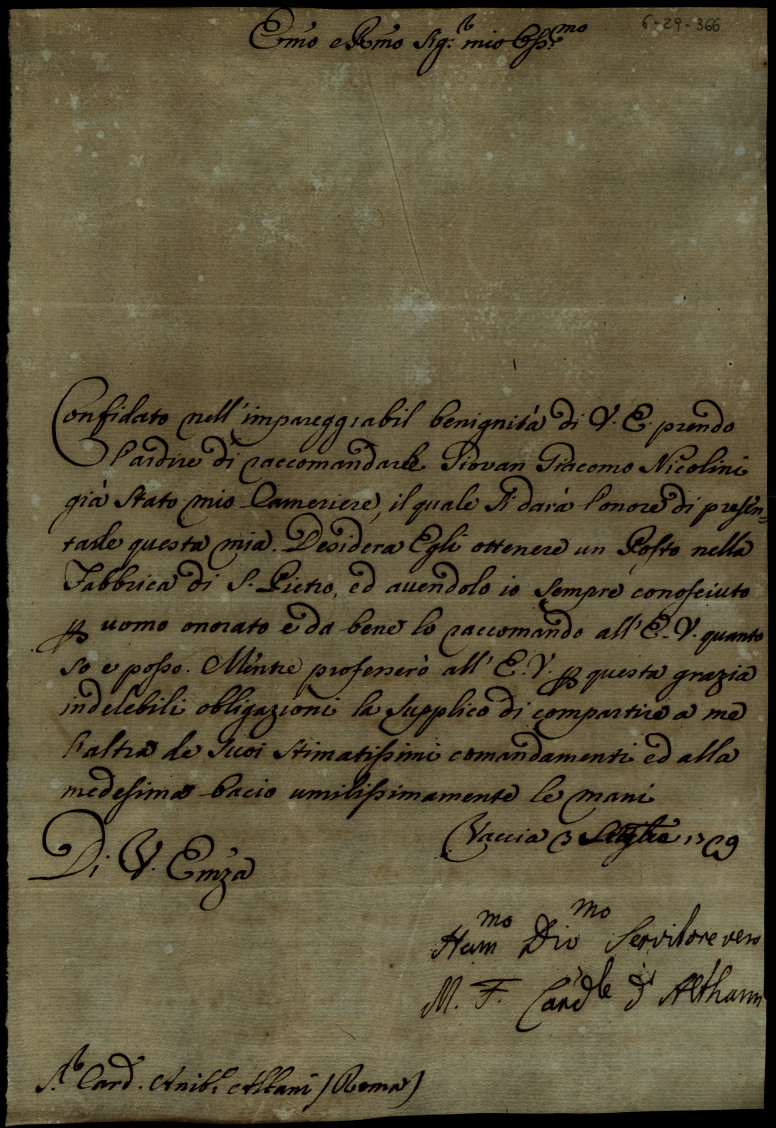 6-29-366
Emo e Rmo Sig.r mio Oss.mo
Confidato nell'impareggiabil benignità di V. E. prendo
l'ardire di raccomandarle Giovan Giacomo Nicolini
già stato mio Cameriere, il quale si darà l'onore di presen=
tarle questa mia. Desidera Egli ottenere un Posto nella
Fabbrica di S. Pietro, ed avendolo io sempre conosciuto
p uomo onorato e da bene lo raccomando all'E. V. quanto
so e posso. Mentre professerò all'E. V. p questa grazia
indelebili obligazioni la supplico di compartire a me
l'altra de suoi stimatissimi comandamenti ed alla
medesima bacio umilissimamente le mani
Vaccia 3 1729
Di V. Emza
Hum.mo Div.mo Servitore vero
M. F. Cardle d'Althann
S.r Card. Anib.e Albani (Roma)